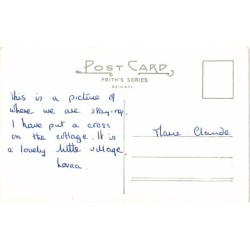 POST CARD
FRITH'S SERIES
REIGATE
This is a picture of
where we are staying.
I have put a cross
on the cottage. It is
a lovely little village.
Marie Claude